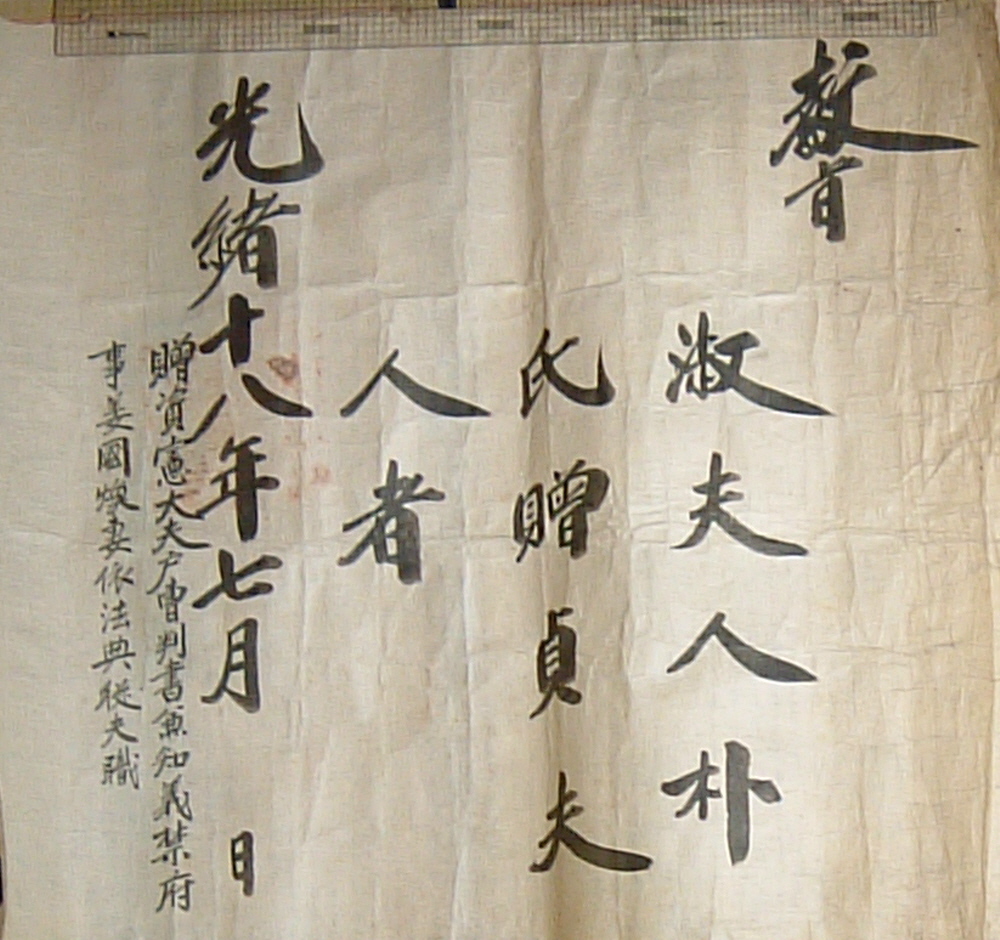 敎旨
淑夫人朴
氏贈貞夫
人者
光緖十八年七月 日
贈資憲大夫戶曺判書兼知義禁府
事姜國煥妻依法典從夫職